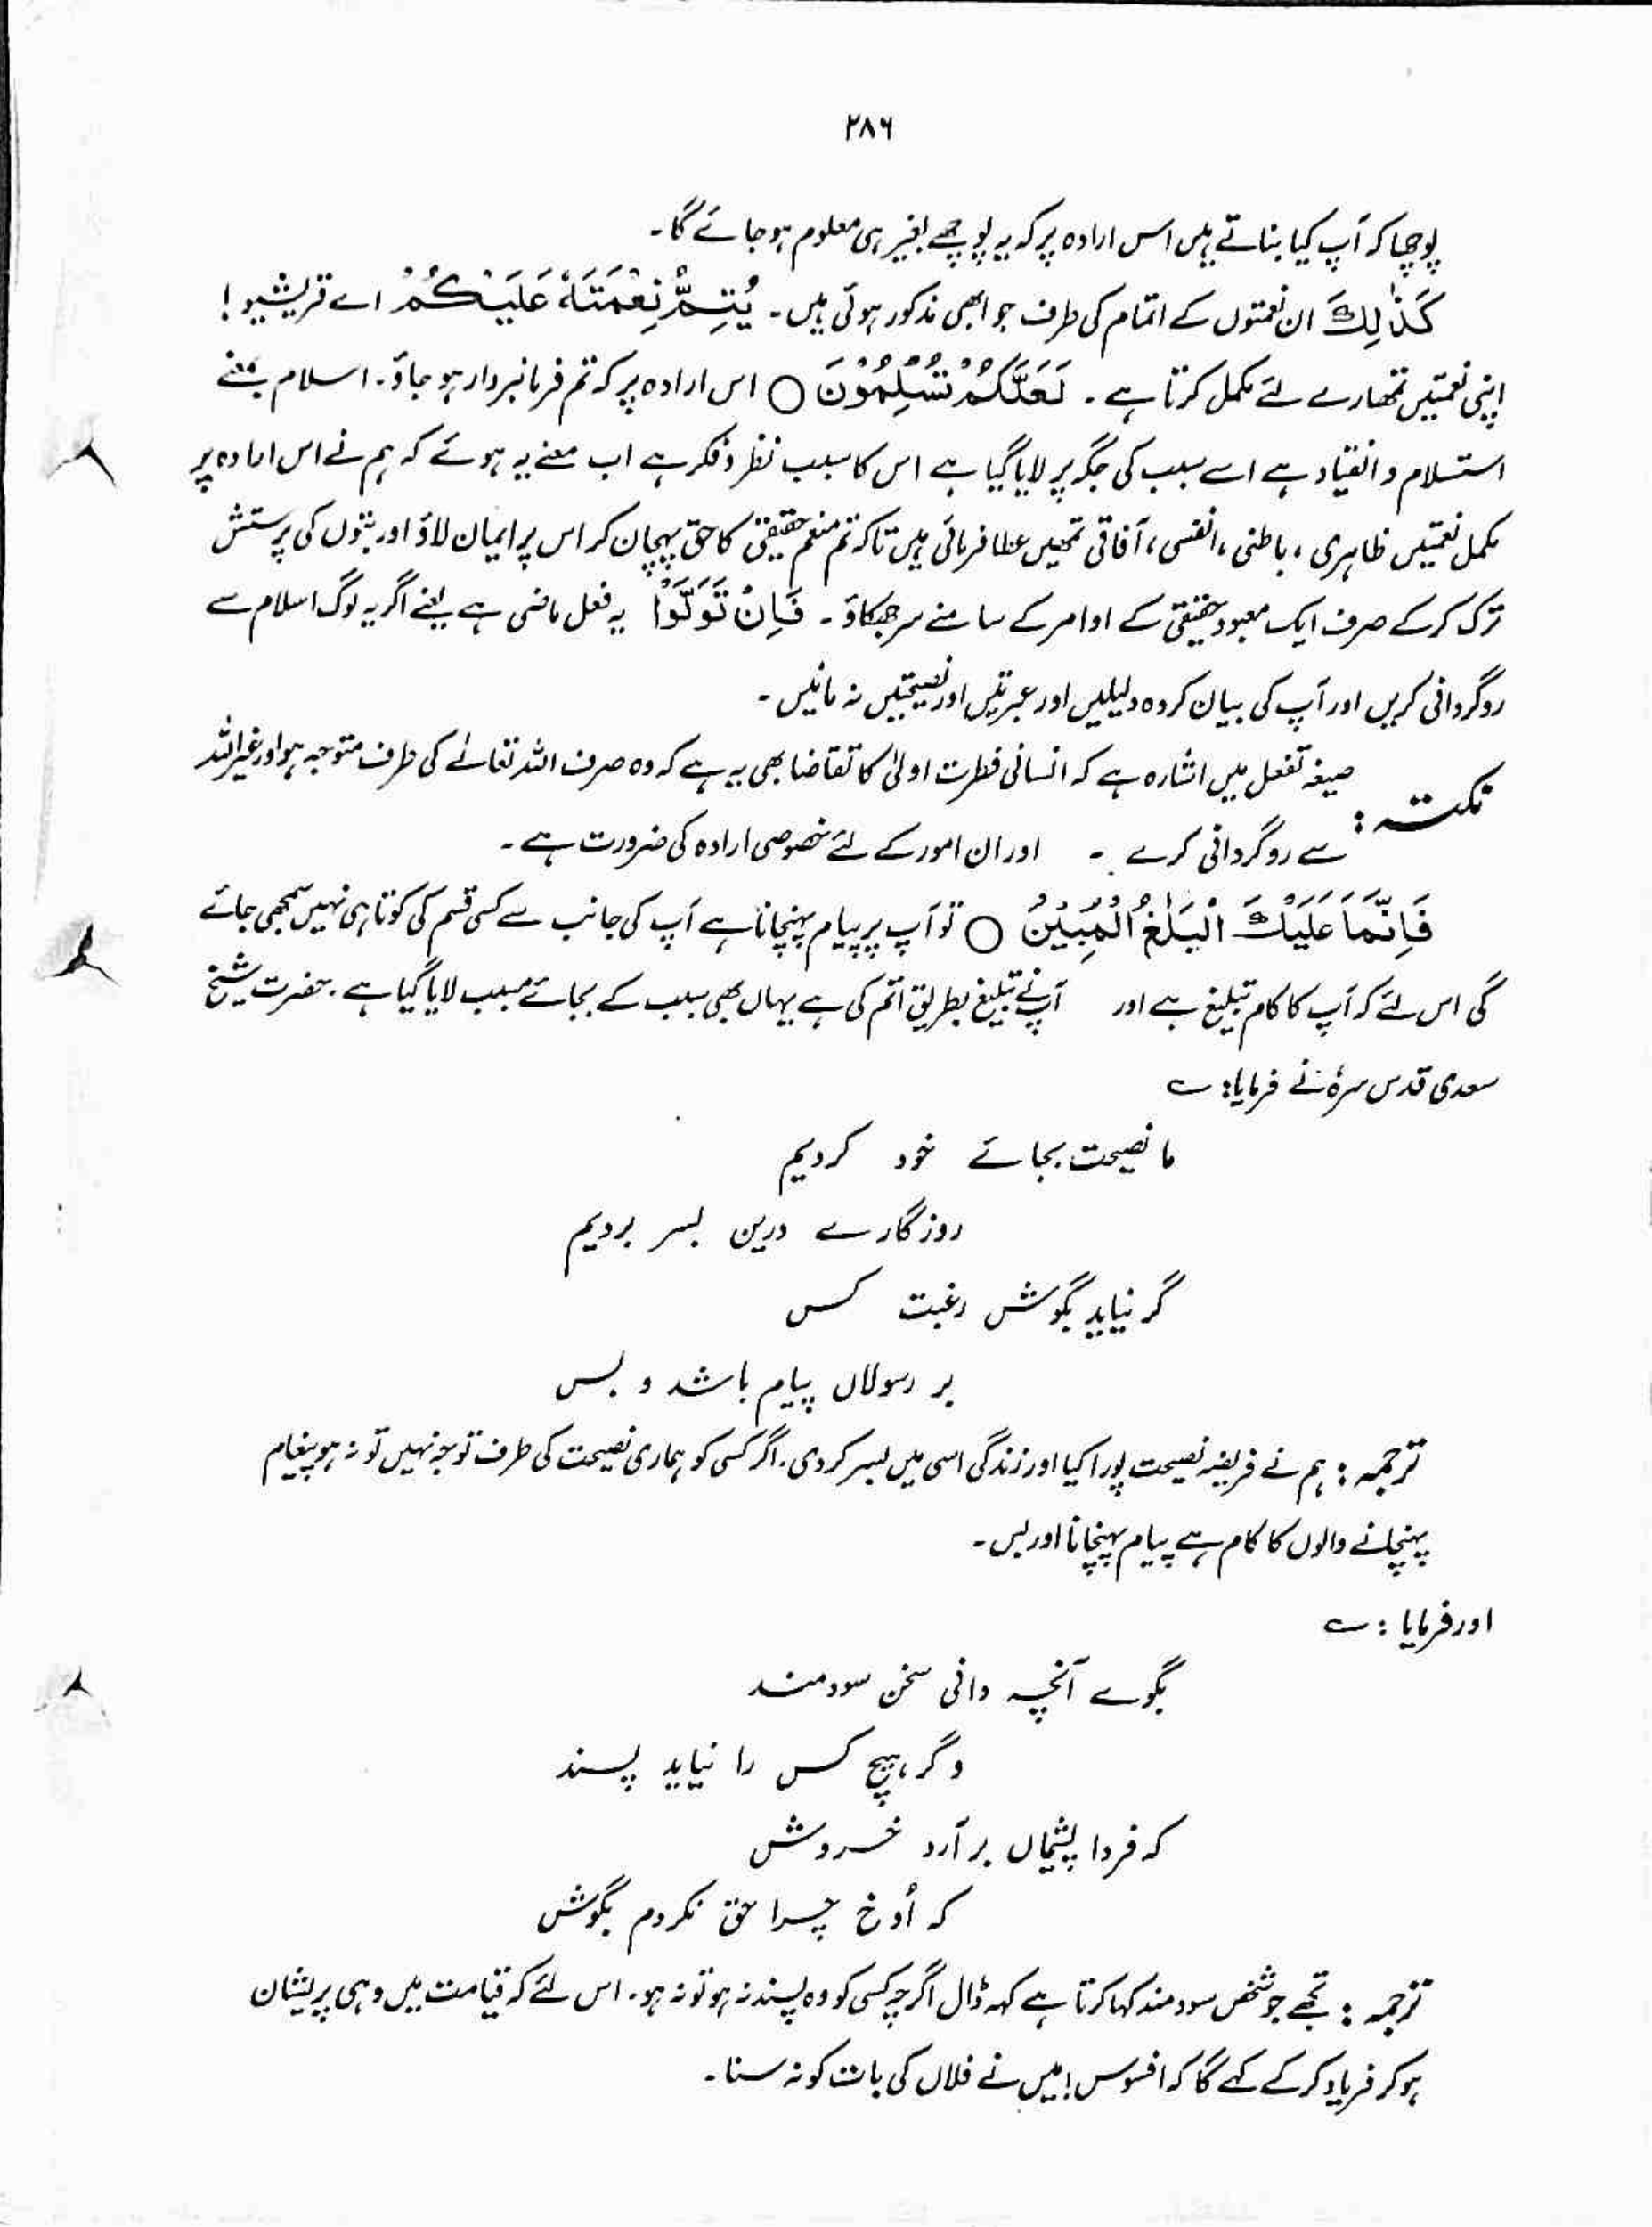 ۲۸۶
پوچھا کہ آپ کیا بناتے ہیں اس ارادہ پر کہ یہ پوچھے بغیر ہی معلوم ہو جائے گا۔
كَذٰلِكَ ان نعمتوں کے اتمام کی طرف جو ابھی مذکور ہوئی ہیں۔ يُتِمُّ نِعْمَتَهٗ عَلَيْكُمْ اے قریشیو!
اپنی نعمتیں تمھارے لئے مکمل کرتا ہے۔ لَعَلَّكُمْ تُسْلِمُوْنَ ○ اس ارادہ پر کہ تم فرمانبردار ہو جاؤ۔ اسلام بمعنے
استسلام و انقیاد ہے اسے سبب کی جگہ پر لایا گیا ہے اس کا سبب نظر و فکر ہے اب معنے یہ ہوئے کہ ہم نے اس ارادہ پر
مکمل نعمتیں ظاہری، باطنی، انفسی، آفاقی تمھیں عطا فرمائی ہیں تاکہ تم منعم حقیقی کا حق پہچان کر اس پر ایمان لاؤ اور بتوں کی پرستش
ترک کرکے صرف ایک معبود حقیقی کے اوامر کے سامنے سر جھکاؤ۔ فَاِنْ تَوَلَّوْا یہ فعل ماضی ہے یعنے اگر یہ لوگ اسلام سے
روگردانی کریں اور آپ کی بیان کردہ دلیلیں اور عبرتیں اور نصیحتیں نہ مانیں۔
نکتہ : صیغہ تفعل میں اشارہ ہے کہ انسانی فطرت اولیٰ کا تقاضا بھی یہ ہے کہ وہ صرف اللہ تعالےٰ کی طرف متوجہ ہو اور غیر اللہ
سے روگردانی کرے ۔ اور ان امور کے لئے خصوصی ارادہ کی ضرورت ہے۔
فَاِنَّمَا عَلَيْكَ الْبَلٰغُ الْمُبِيْنُ ○ تو آپ پر پیام پہنچانا ہے آپ کی جانب سے کسی قسم کی کوتاہی نہیں سمجھی جائے
گی اس لئے کہ آپ کا کام تبلیغ ہے اور آپ نے تبلیغ بطریق اتم کی ہے یہاں بھی سبب کے بجائے مسبب لایا گیا ہے۔ حضرت شیخ
سعدی قدس سرہٗ نے فرمایا: ؎
ما نصیحت بجائے خود کردیم
روزگارے درین بسر بردیم
گر نیاید بگوش رغبت کس
بر رسولاں پیام باشد و بس
ترجمہ : ہم نے فریضہ نصیحت پورا کیا اور زندگی اسی میں بسر کر دی۔ اگر کسی کو ہماری نصیحت کی طرف توجہ نہیں تو نہ ہو پیغام
پہنچانے والوں کا کام ہے پیام پہنچانا اور بس۔
اور فرمایا : ؎
بگوے آنچہ دانی سخن سودمند
وگر ہیچ کس را نیاید پسند
کہ فردا پشیماں بر آرد خروش
کہ اُوخ چرا حق نکردم بگوش
ترجمہ : تجھے جو شخص سودمند کہا کرتا ہے کہہ ڈال اگرچہ کسی کو وہ پسند نہ ہو تو نہ ہو۔ اس لئے کہ قیامت میں وہی پریشان
ہو کر فریاد کرکے کہے گا کہ افسوس! میں نے فلاں کی بات کو نہ سنا۔